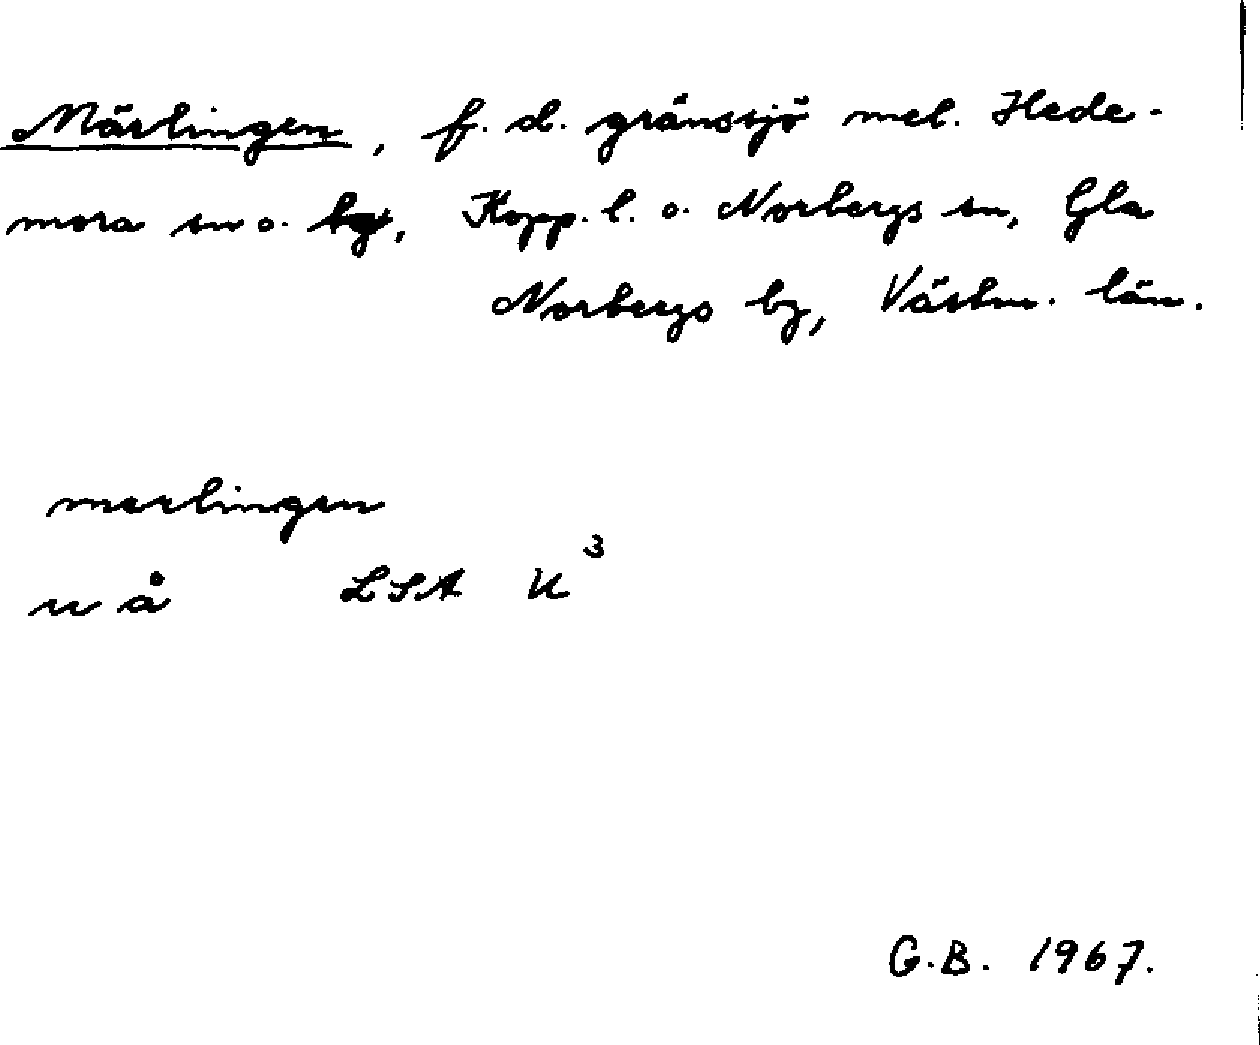 Märlingen, f. d. gränssjö mel. Hede-
mora sn o. hg, Kopp. l. o. Norbergs sn, Gla
Norbergs bg, Västm. län.
merlingen
u å LSA U³
G.B. 1967.